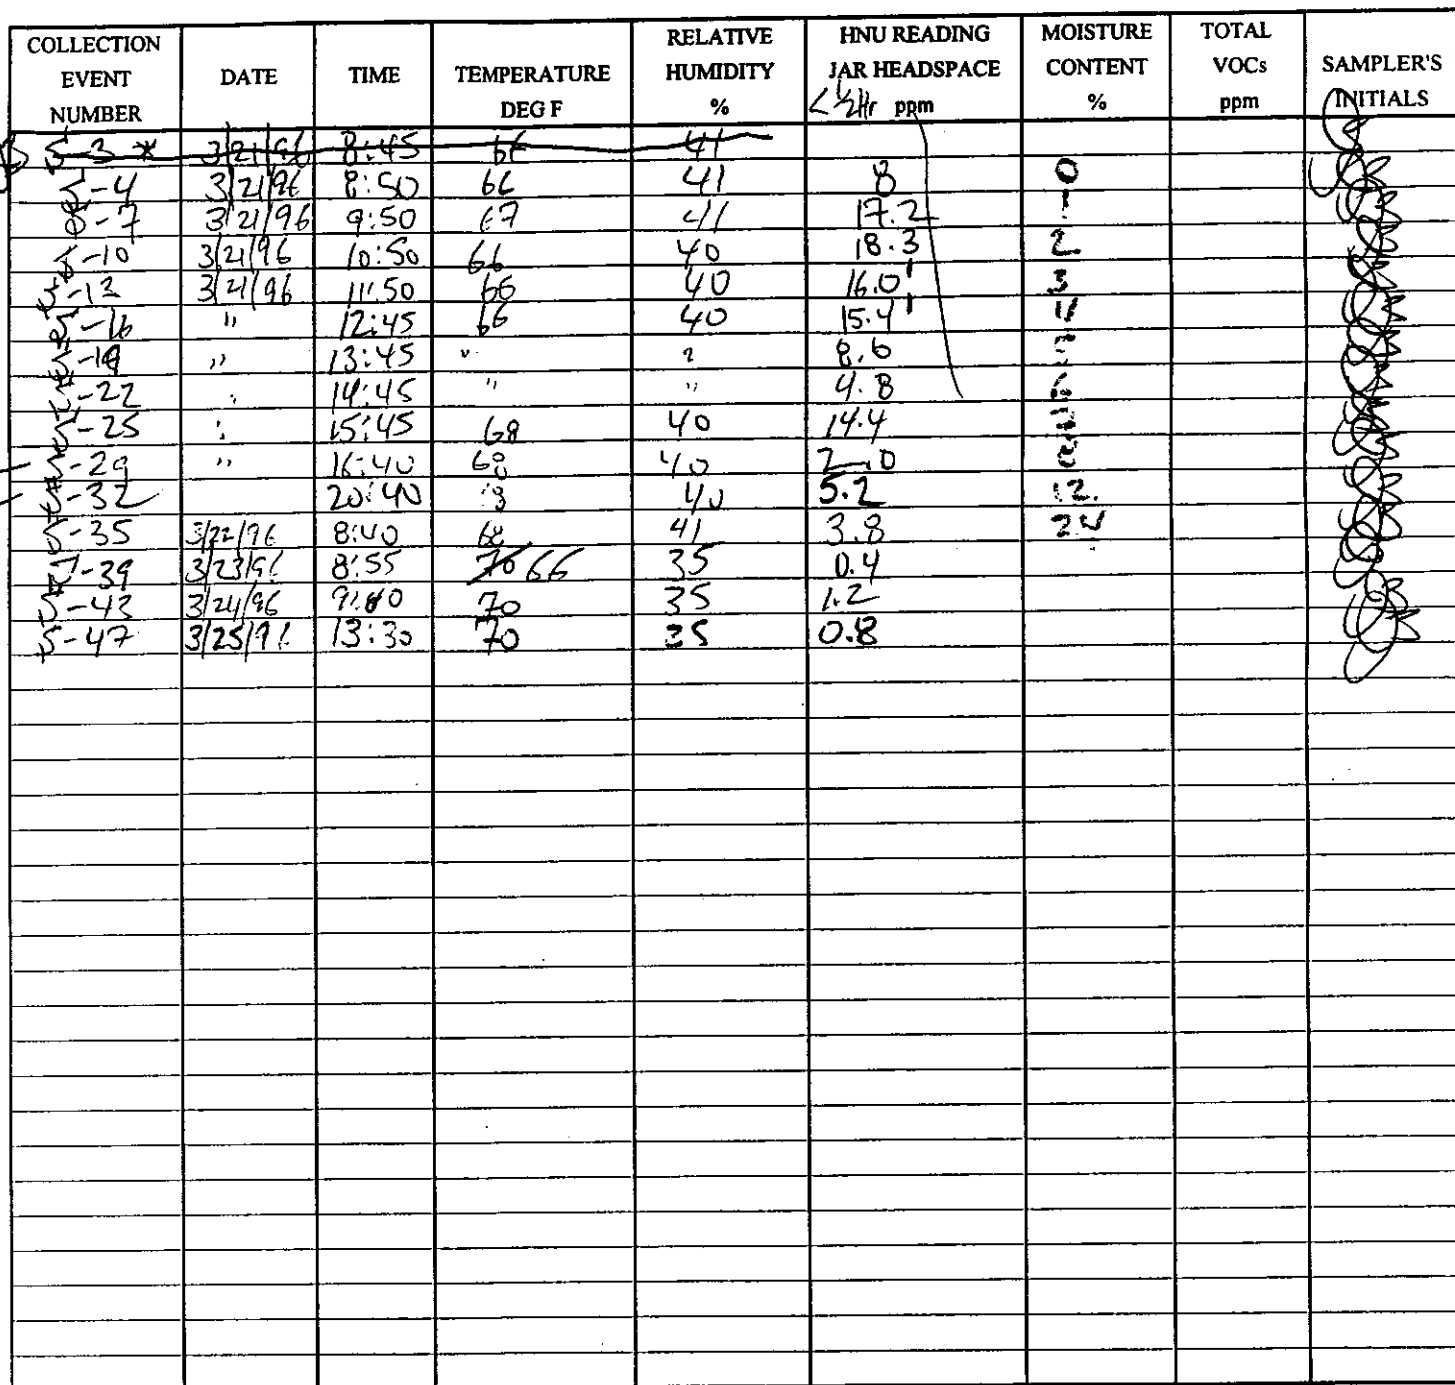 COLLECTION EVENT NUMBER DATE TIME TEMPERATURE DEG F RELATIVE HUMIDITY % HNU READING JAR HEADSPACE <½Hr ppm MOISTURE CONTENT % TOTAL VOCs ppm SAMPLER'S INITIALS
5-3 * 3/21/96 8:45 66 41
5-4 3/21/96 8:50 66 41 8 0
5-7 3/21/96 9:50 67 41 17.2 1
5-10 3/21/96 10:50 66 40 18.3 2
5-13 3/21/96 11:50 66 40 16.0 3
5-16 " 12:45 66 40 15.4 4
5-19 " 13:45 " " 8.6
5-22 " 14:45 " " 4.8
5-25 " 15:45 68 40 14.4
5-29 " 16:40 68 40 2.0
5-32 20:40 40 5.2 12
5-35 3/22/96 8:40 68 41 3.8 24
5-39 3/23/96 8:55 70 66 35 0.4
5-43 3/24/96 70 35 1.2
5-47 3/25/96 13:30 70 35 0.8